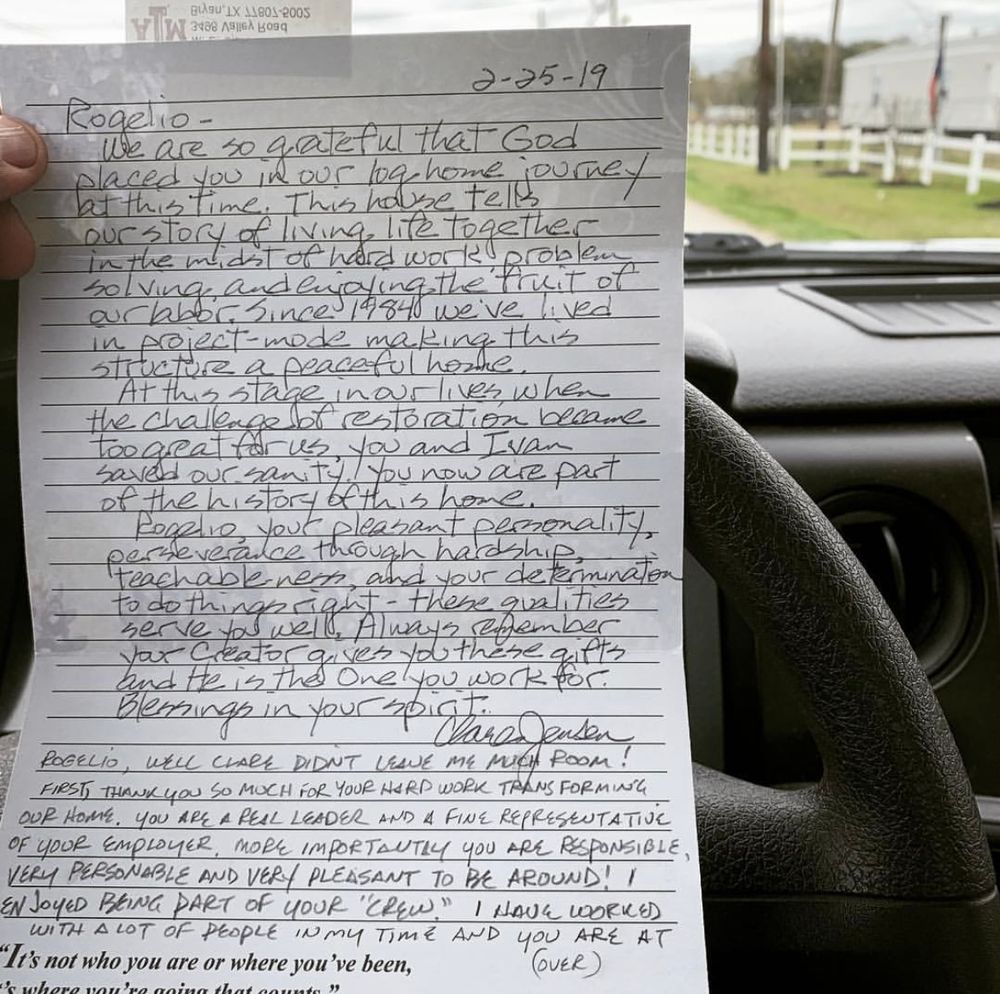 Bryan, TX 77807-5002
3498 Valley Road
ATM
2-25-19
Rogelio -
We are so grateful that God
placed you in our log home journey
at this time. This house tells
our story of living life together
in the midst of hard work, problem
solving, and enjoying the fruit of
our labor. Since 1984 we've lived
in project-mode making this
structure a peaceful home.
At this stage in our lives, when
the challenge of restoration became
too great for us, you and Ivan
saved our sanity! You now are part
of the history of this home.
Rogelio, your pleasant personality,
perseverance through hardship,
teachable-ness, and your determination
to do things right - these qualities
serve you well. Always remember
your Creator gives you these gifts
and He is the One you work for.
Blessings in your spirit.
Clare Jensen
ROGELIO, WELL CLARE DIDN'T LEAVE ME MUCH ROOM!
FIRST, THANK YOU SO MUCH FOR YOUR HARD WORK TRANSFORMING
OUR HOME. YOU ARE A REAL LEADER AND A FINE REPRESENTATIVE
OF YOUR EMPLOYER. MORE IMPORTANTLY YOU ARE RESPONSIBLE,
VERY PERSONABLE AND VERY PLEASANT TO BE AROUND! I
ENJOYED BEING PART OF YOUR "CREW." I HAVE WORKED
WITH A LOT OF PEOPLE IN MY TIME AND YOU ARE AT
(OVER)
"It's not who you are or where you've been,
's where you're going that counts."